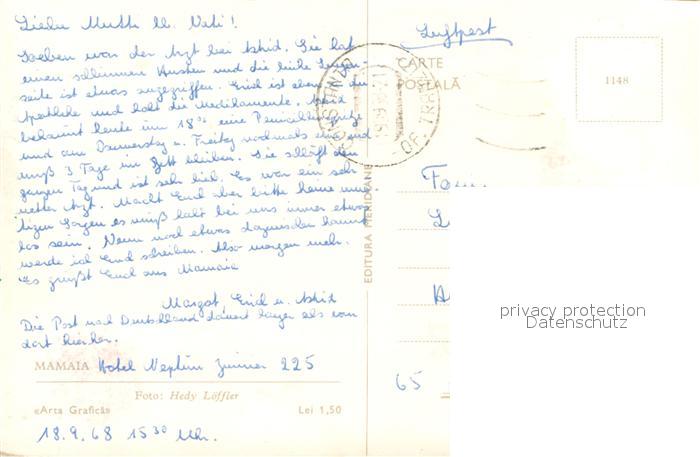 Liebe Mutti, lb. Vati!
Soeben war der Arzt bei Astrid. Sie hat
einen schlimmen Husten und die linke Lungen-
seite ist etwas angegriffen. Erich ist eben in der
Apotheke und holt die Medikamente. Astrid
bekommt heute um 18⁰⁰ eine Penicillinspritze
und am Donnerstag u. Freitag nochmals eine und
muß 3 Tage im Bett bleiben. Sie schläft den
ganzen Tag und ist sehr lieb. Es war ein sehr
netter Arzt. Macht Euch aber bitte keine
Sorgen es muß halt bei uns immer etwas
los sein. Wenn noch etwas dazwischen kommt
werde ich Euch schreiben. Also morgen mehr.
Es grüßt Euch aus Mamaia
Margot, Erich u. Astrid
Die Post nach Deutschland dauert länger als von
dort hierher.
MAMAIA Hotel Neptun Zimmer 225
Foto: Hedy Löffler
«Arta Grafică» Lei 1,50
18.9.68 15³⁰ Uhr.
EDITURA MERIDIANE
Luftpost
CARTE
POȘTALĂ
CONSTANȚA
1148
65
privacy protection
Datenschutz